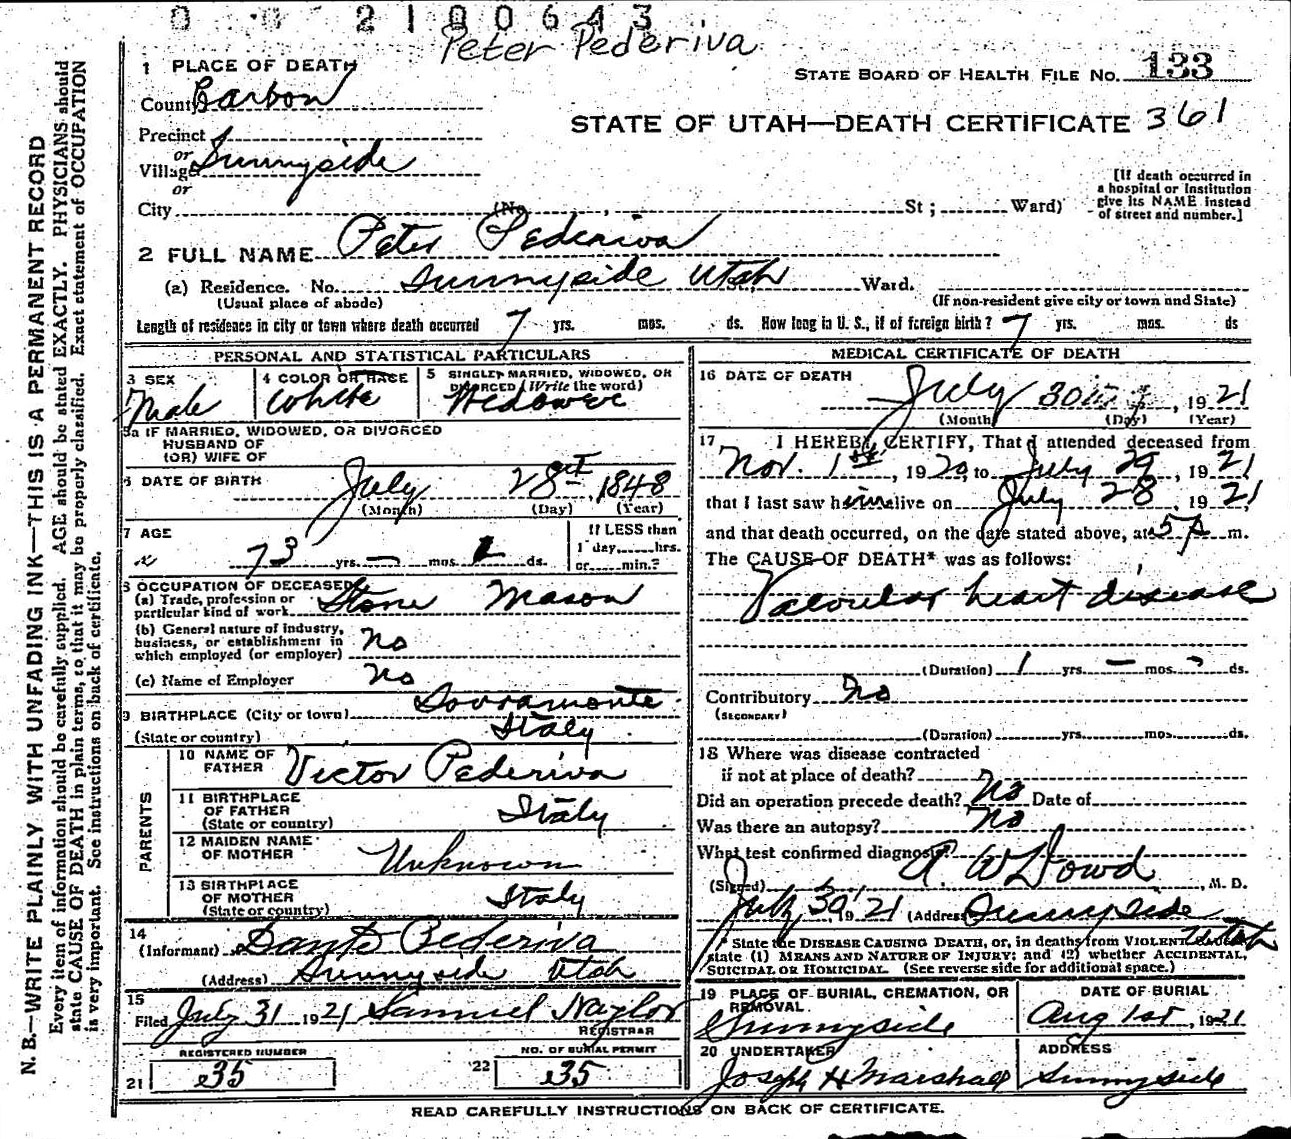 2100643
Peter Pederiva
1 PLACE OF DEATH
STATE BOARD OF HEALTH FILE NO. 133
County Carbon
STATE OF UTAH—DEATH CERTIFICATE 361
Precinct
or
Village Sunnyside
or
City (No. , St ; Ward)
[If death occurred in
a hospital or institution
give its NAME instead
of street and number.]
2 FULL NAME Peter Pederiva
(a) Residence. No. Sunnyside Utah Ward.
(Usual place of abode)
(If non-resident give city or town and State)
Length of residence in city or town where death occurred 7 yrs. mos. ds. How long in U. S., if of foreign birth? 7 yrs. mos. ds
PERSONAL AND STATISTICAL PARTICULARS
3 SEX
Male
4 COLOR OR RACE
White
5 SINGLE, MARRIED, WIDOWED, OR
DIVORCED (Write the word)
Widower
5a IF MARRIED, WIDOWED, OR DIVORCED
HUSBAND OF
(OR) WIFE OF
6 DATE OF BIRTH July 28 , 1848
(Month) (Day) (Year)
7 AGE
73 yrs. — mos. 2 ds.
If LESS than
1 day, hrs.
or min.?
8 OCCUPATION OF DECEASED
(a) Trade, profession or
particular kind of work Stone Mason
(b) General nature of industry,
business, or establishment in
which employed (or employer) no
(c) Name of Employer no
9 BIRTHPLACE (City or town) Sovramonte
(State or country) Italy
PARENTS
10 NAME OF
FATHER Victor Pederiva
11 BIRTHPLACE
OF FATHER
(State or country) Italy
12 MAIDEN NAME
OF MOTHER Unknown
13 BIRTHPLACE
OF MOTHER
(State or country) Italy
14
(Informant) Sante Pederiva
(Address) Sunnyside Utah
15
Filed July 31 1921 Samuel Naylor
REGISTRAR
REGISTERED NUMBER
21 35
NO. OF BURIAL PERMIT
22 35
MEDICAL CERTIFICATE OF DEATH
16 DATE OF DEATH
July 30 , 1921
(Month) (Day) (Year)
17 I HEREBY CERTIFY, That I attended deceased from
Nov. 1st , 1920, to July 29 , 1921
that I last saw him alive on July 28 , 1921,
and that death occurred, on the date stated above, at 5 p m.
The CAUSE OF DEATH* was as follows:
Valvular heart disease
(Duration) 1 yrs. — mos. ds.
Contributory No
(SECONDARY)
(Duration) yrs. mos. ds.
18 Where was disease contracted
if not at place of death?
Did an operation precede death? No Date of
Was there an autopsy? No
What test confirmed diagnosis?
(Signed) A W Dowd , M. D.
July 30, 1921 (Address) Sunnyside
Utah
* State the DISEASE CAUSING DEATH, or, in deaths from VIOLENT CAUSES,
state (1) MEANS AND NATURE OF INJURY; and (2) whether ACCIDENTAL,
SUICIDAL OR HOMICIDAL. (See reverse side for additional space.)
19 PLACE OF BURIAL, CREMATION, OR
REMOVAL
Sunnyside
DATE OF BURIAL
Aug 1st , 1921
20 UNDERTAKER
Joseph H Marshall
ADDRESS
Sunnyside
READ CAREFULLY INSTRUCTIONS ON BACK OF CERTIFICATE.
N. B.—WRITE PLAINLY WITH UNFADING INK—THIS IS A PERMANENT RECORD
Every item of information should be carefully supplied. AGE should be stated EXACTLY. PHYSICIANS should
state CAUSE OF DEATH in plain terms, so that it may be properly classified. Exact statement of OCCUPATION
is very important. See instructions on back of certificate.